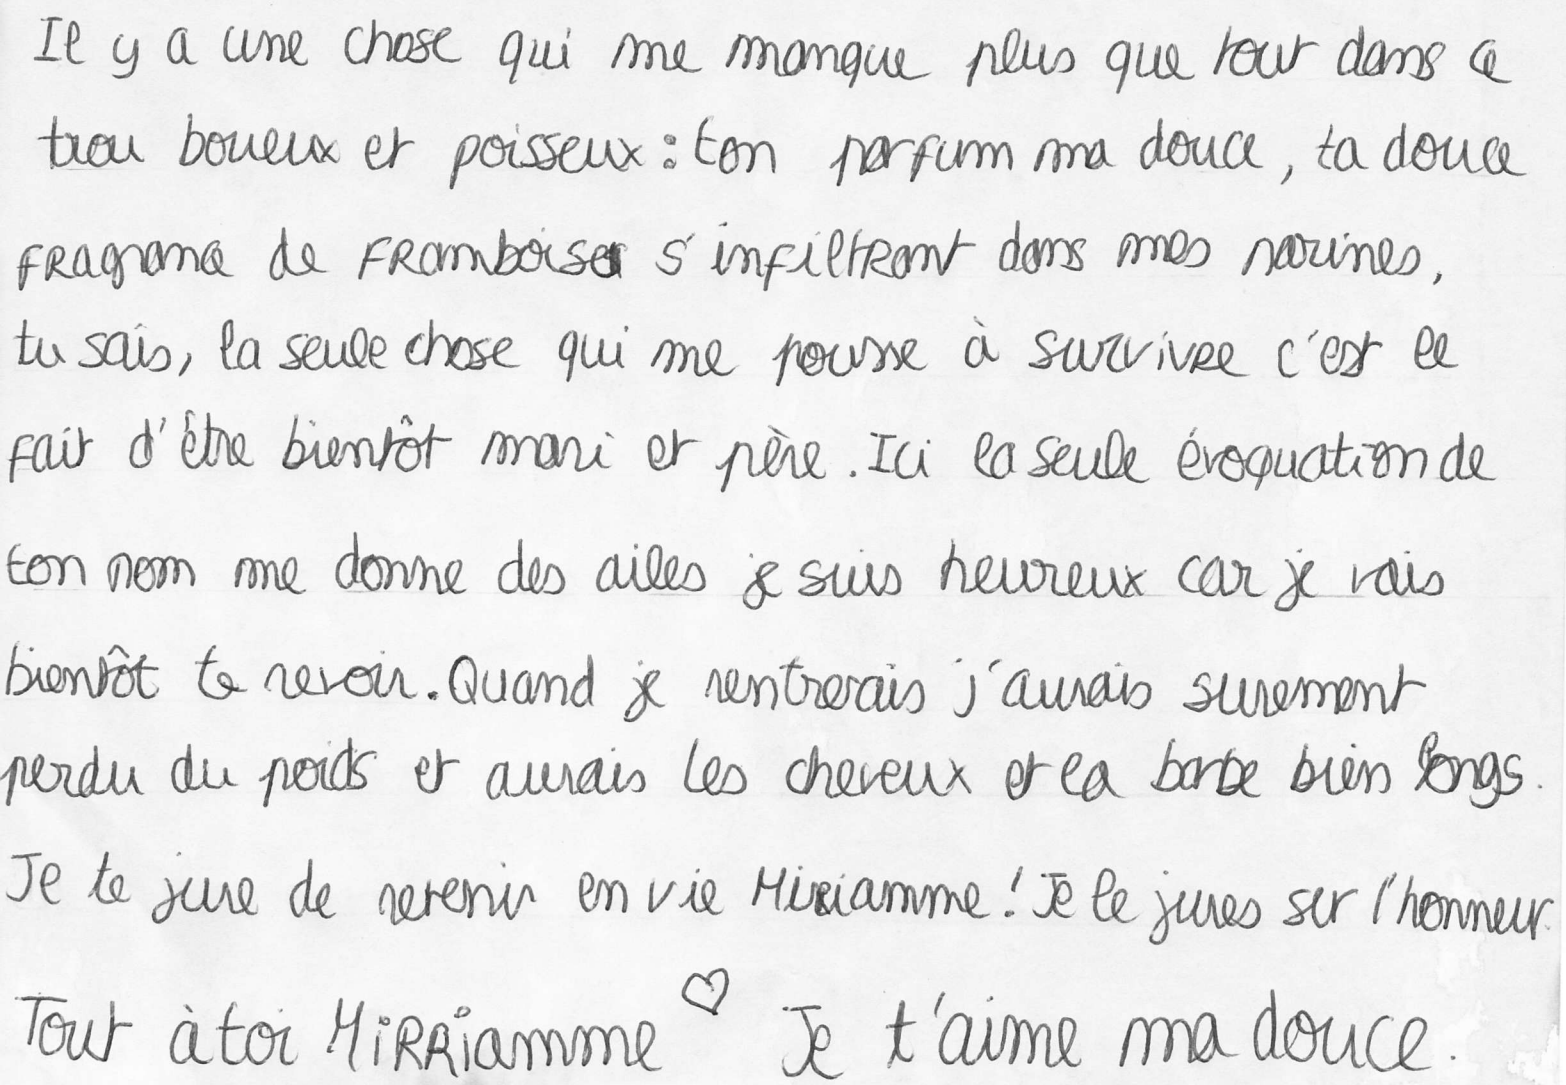 Il y a une chose qui me manque plus que tout dans ce
trou boueux et poisseux : ton parfum ma douce, ta douce
fragrance de framboises s'infiltrant dans mes narines,
tu sais, la seule chose qui me pousse à survivre c'est le
fait d'être bientôt mari et père. Ici la seule évoquation de
ton nom me donne des ailes je suis heureux car je vais
bientôt te revoir. Quand je rentrerais j'aurais surement
perdu du poids et aurais les cheveux et la barbe bien longs.
Je te jure de revenir en vie Miriamme ! Je le jures sur l'honneur.
Tout à toi MiRRiamme ♡ Je t'aime ma douce.